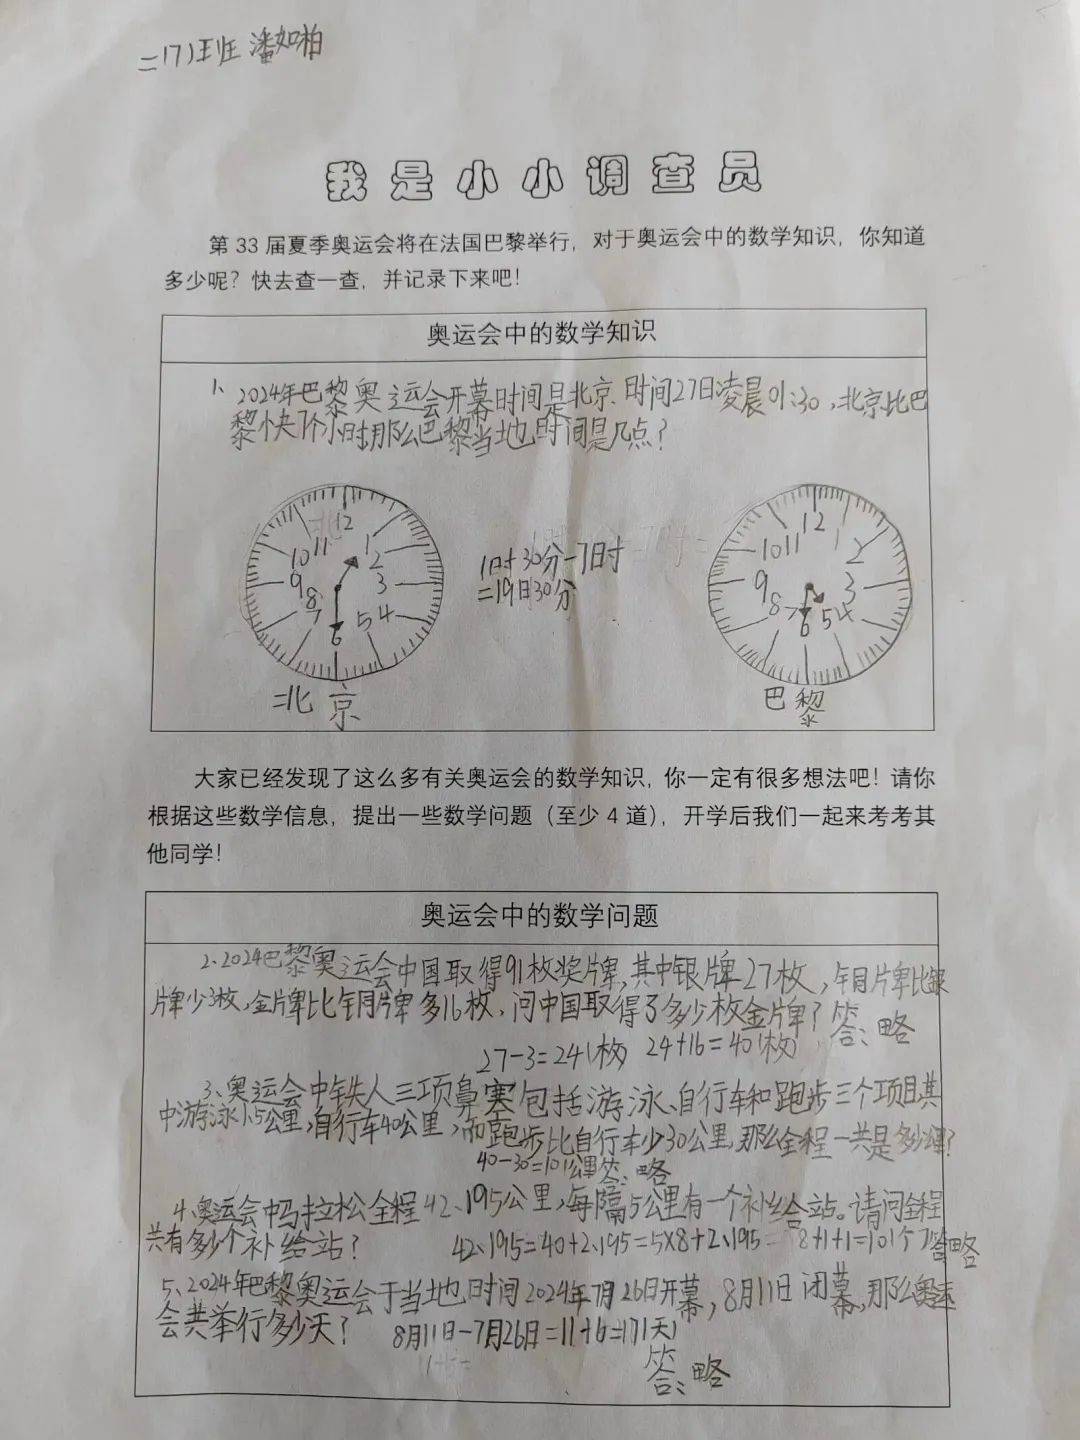 二(7)班 潘如柏
我是小小调查员
第 33 届夏季奥运会将在法国巴黎举行，对于奥运会中的数学知识，你知道
多少呢？快去查一查，并记录下来吧！
奥运会中的数学知识
1、2024年巴黎奥运会开幕时间是北京时间27日凌晨01:30，北京比巴
黎快7个小时那么巴黎当地时间是几点？
12 1 2 3 4 5 6 7 8 9 10 11
1时30分-7时
=19时30分
12 1 2 3 4 5 6 7 8 9 10 11
北京
巴黎
大家已经发现了这么多有关奥运会的数学知识，你一定有很多想法吧！请你
根据这些数学信息，提出一些数学问题（至少 4 道），开学后我们一起来考考其
他同学！
奥运会中的数学问题
2、2024巴黎奥运会中国取得91枚奖牌，其中银牌27枚，铜牌比银
牌少3枚，金牌比铜牌多16枚，问中国取得了多少枚金牌？答：略
27-3=24(枚) 24+16=40(枚)
3、奥运会中铁人三项鼻塞包括游泳、自行车和跑步三个项目其
中游泳1.5公里，自行车40公里，而跑步比自行车少30公里，那么全程一共是多少
40-30=10(公里 答：略
4、奥运会中马拉松全程42、195公里，每隔5公里有一个补给站。请问全程
共有多少个补给站？ 42、195=40+2、195=5×8+2、195= 8+1+1=10(个)答略
5、2024年巴黎奥运会于当地时间2024年7月26日开幕，8月11日闭幕，那么奥运
会共举行多少天？ 8月11日-7月26日=11+6=17(天)
答：略